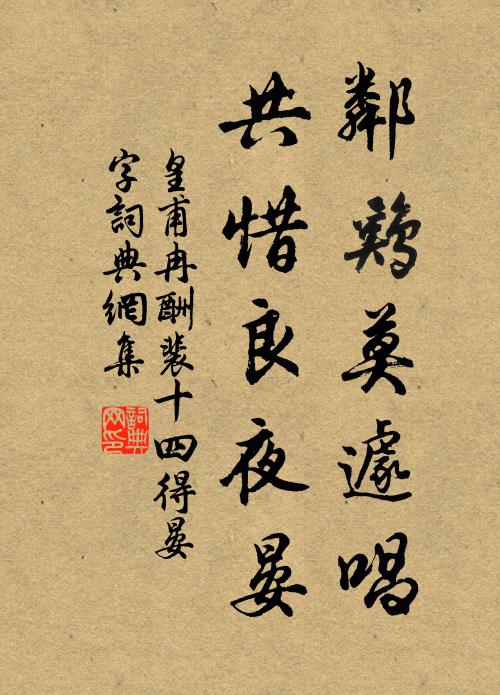 鄰鷄莫遽唱
共惜良夜晏
皇甫冉酬裴十四得晏
字詞典網集
詞典
网印